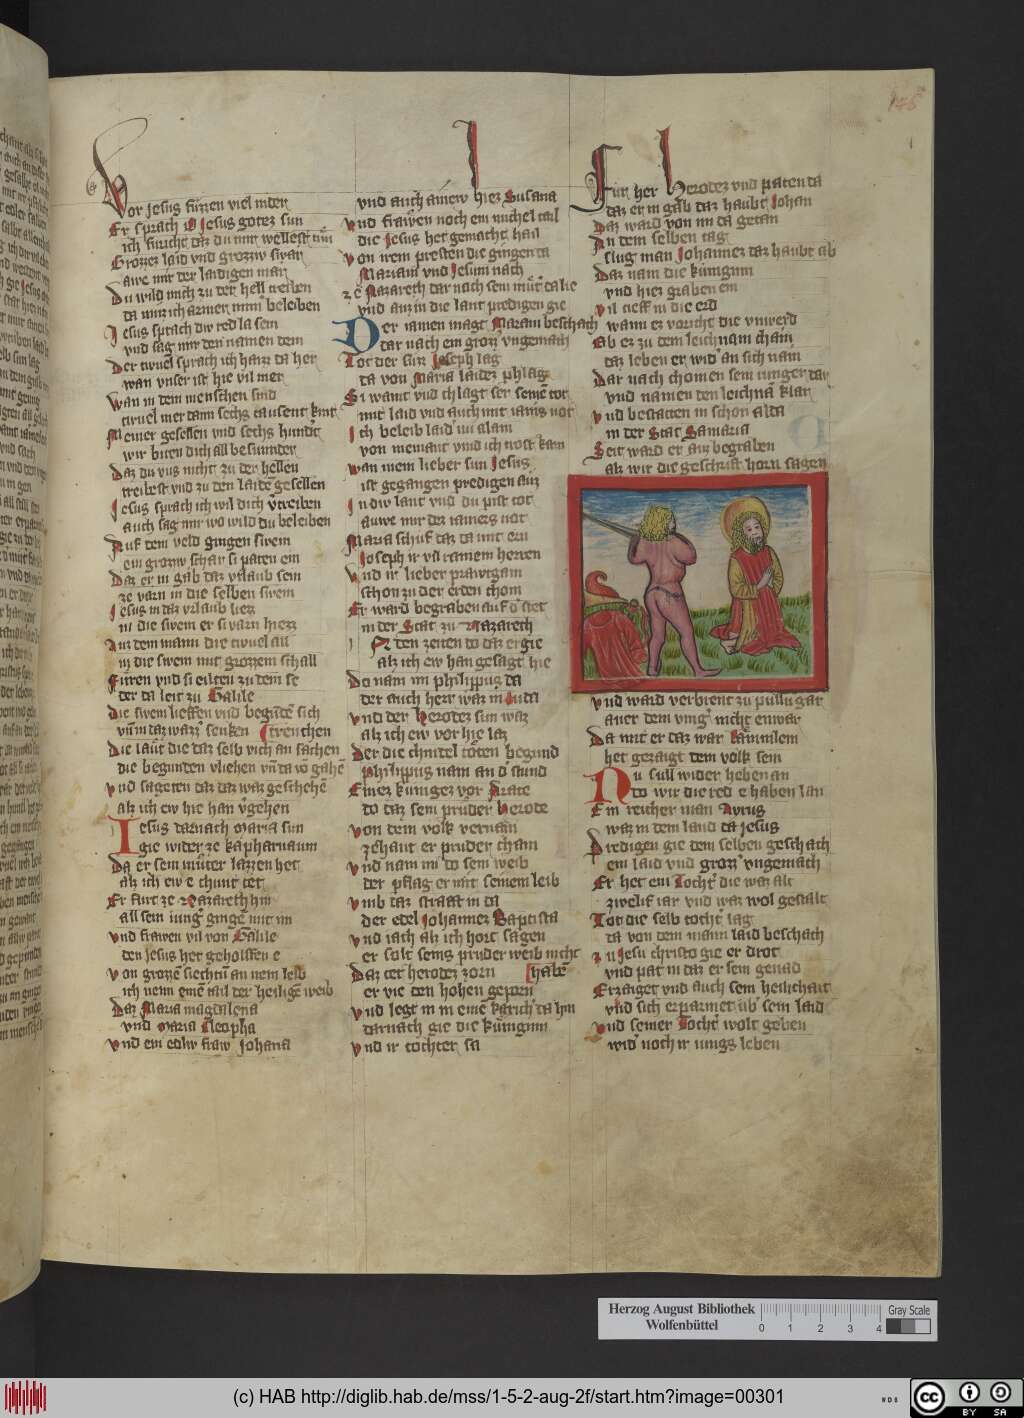 Vor Jesus fuͤzzen viel nider
Er sprach O Jesus gotez sun
ich furcht daz du mir wellest tuͦn
Grozzez laid vnd grozziv swar
awe mir der laidigen mar
Du wild mich zu der hell treiben
da muz ich armer inne beleiben
Jesus sprach div red la sein
vnd sag mir den namen dein
Der tiwuel sprach ich hazz da her
wan vnser ist hie vil mer
Wan in dem menschen sind
tiwuel mer dann sechs tausent kint
Meiner gesellen vnd sechs hundt
wir biten dich all besunder
Daz du vns nicht zu der hellen
treibest vnd zu den laidē gesellen
Jesus sprach ich wil dich v̓treiben
auch sag mir wo wild du beleiben
Auf dem veld gingen swein
ein grozziv schar si paten ein
Daz er in gab daz vrlaub sein
ze varn in die selben swein
Jesus in daz vrlaub liez
in die swein er si varn hiezz
Auz dem mann die tiwuel all
in die swein mit grozzem schall
Furen vnd si eilten zu dem se
der da leit zu Galile
Die swein lieffen vnd begūdē sich
vn̄ in daz wazz̓ senken trenchen
Die laut̓ die daz selb vich an sachen
die begunden vliehen vn̄ da vō gahē
Vnd sageten daz daz waz geschehē
alz ich ew hie han v̓gehen
Jesus darnach Maria sun
gie wider ze kapharnaum
Da er sein muͤter lazzen het
alz ich ew e chunt tet
Er furt ze Nazareth hin
all sein iung̓ gingē mit im
Vnd frawen vil von Galile
den Jesus het geholffen e
Von grozzē siechtū an irem leib
ich nenn ewē tail der heiligē weib
Daz Maria magdalena
vnd Maria Cleopha
Vnd ein edliv fraw Johana
vnd auch ainew hiez Susana
Vnd frawen noch ein michel tail
die Jesus het gemacht hail
Von irem presten die gingen da
Mariam vnd Jesum nach
Ze Nazareth dar nach sein muͤt̓ ē alie
vnd auz in die lant predigen gie
Der rainen magt Mariam beschach
dar nach ein grozz vngemach
Tot der sun Joseph lag
da von Maria laidez phlag
Si waint vnd chlagt ser seinē tot
mit laid vnd auch mit iamers not
Ich beleib laid nu alain
von niemant vind ich trost kain
Wan mein lieber sun Jesus
ist gegangen predigen auz
In div lant vnd du pist tot
auwe mir dez iamers not
Maria schuf daz da mit ein
Joseph ir vil rainem herren
Vnd ir lieber prawtgam
schon zu der erden chom
Er ward begraben auf d̓ stet
in der Stat zu Nazareth
Pei den zeiten do daz ergie
alz ich ew han gesagt hie
Do nam im philippus da
der auch herr waz in Juda
Vnd der Herodez sun waz
alz ich ew vor hie laz
Der die chindel toͤten begund
philippus nam an d̓ stund
Einez kunigez vor Arate
do daz sein pruder Herode
Von dem volk vernam
zehant er pruder cham
Vnd nam im do sein weib
der pflag er mit seinem leib
Vmb daz strafft in da
der edel Johannez Baptista
Vnd iach alz ich hort sagen
er solt seins pruder weib nicht
Daz tet herodez zorn haben
er vie den hohen geporn
Vnd legt in in einē karich̓ da hin
darnach gie die kunginn
Vnd ir tochter sa
Fur her Herodez vnd paten da
daz er in gab daz haubt Johan
Daz ward von im da getan
An dem selben tag
slug man Johannez daz haubt ab
Daz nam die kunginn
vnd hiez graben ein
Vil tieff in die erd
wann ez vorcht die vnwerd
Ob ez zu dem leichnam cham
daz leben er wid̓ an sich nam
Dar nach chomen sein iunger dar
vnd namen den leichnā klar
Vnd bestatten in schon alda
in der Stat Samaria
Seit ward er auz begraben
alz wir die geschrift horn sagen
Vnd ward verbrent zu pullug gar
auer dem ving̓ nicht enwar
Da mit er daz war lammlein
het gezaigt dem volk sein
Nu sull wider heben an
do wir die red e haben lan
Ein reicher man Ayrus
waz in dem land da Jesus
Predigen gie dem selben geschach
ein laid vnd grozz̓ vngemach
Er het ein Tocht̓ die waz alt
zwelif iar vnd waz wol gestalt
Tot die selb tocht̓ lag
da von dem mann laid beschach
Zu Jesu christo gie er drot
vnd pat in daz er sein genad
Erzaiget vnd auch sein heilichait
vnd sich erparmet vb̓ sein laid
Vnd seiner Tocht̓ wolt geben
wid̓ noch ir iungs leben
Herzog August Bibliothek
Wolfenbüttel
0 1 2 3 4
Gray Scale
(c) HAB http://diglib.hab.de/mss/1-5-2-aug-2f/start.htm?image=00301
cc BY SA